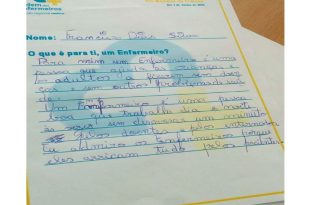 dem
enfermeiros
Nome: Francisco Dias Silva
O que é para ti, um Enfermeiro?
Para mim um Enfermeiro é uma
pessoa que ajuda as crianças e
os adultos a ficarem sem doen
ças e sem outros problemas de saú
de.
Um Enfermeiro é uma pessoa
que trabalha dia e noite
sem descansar um minuto
pelos doentes e pelos internados
Eu admiro os enfermeiros porque
eles arriscam tudo pelos